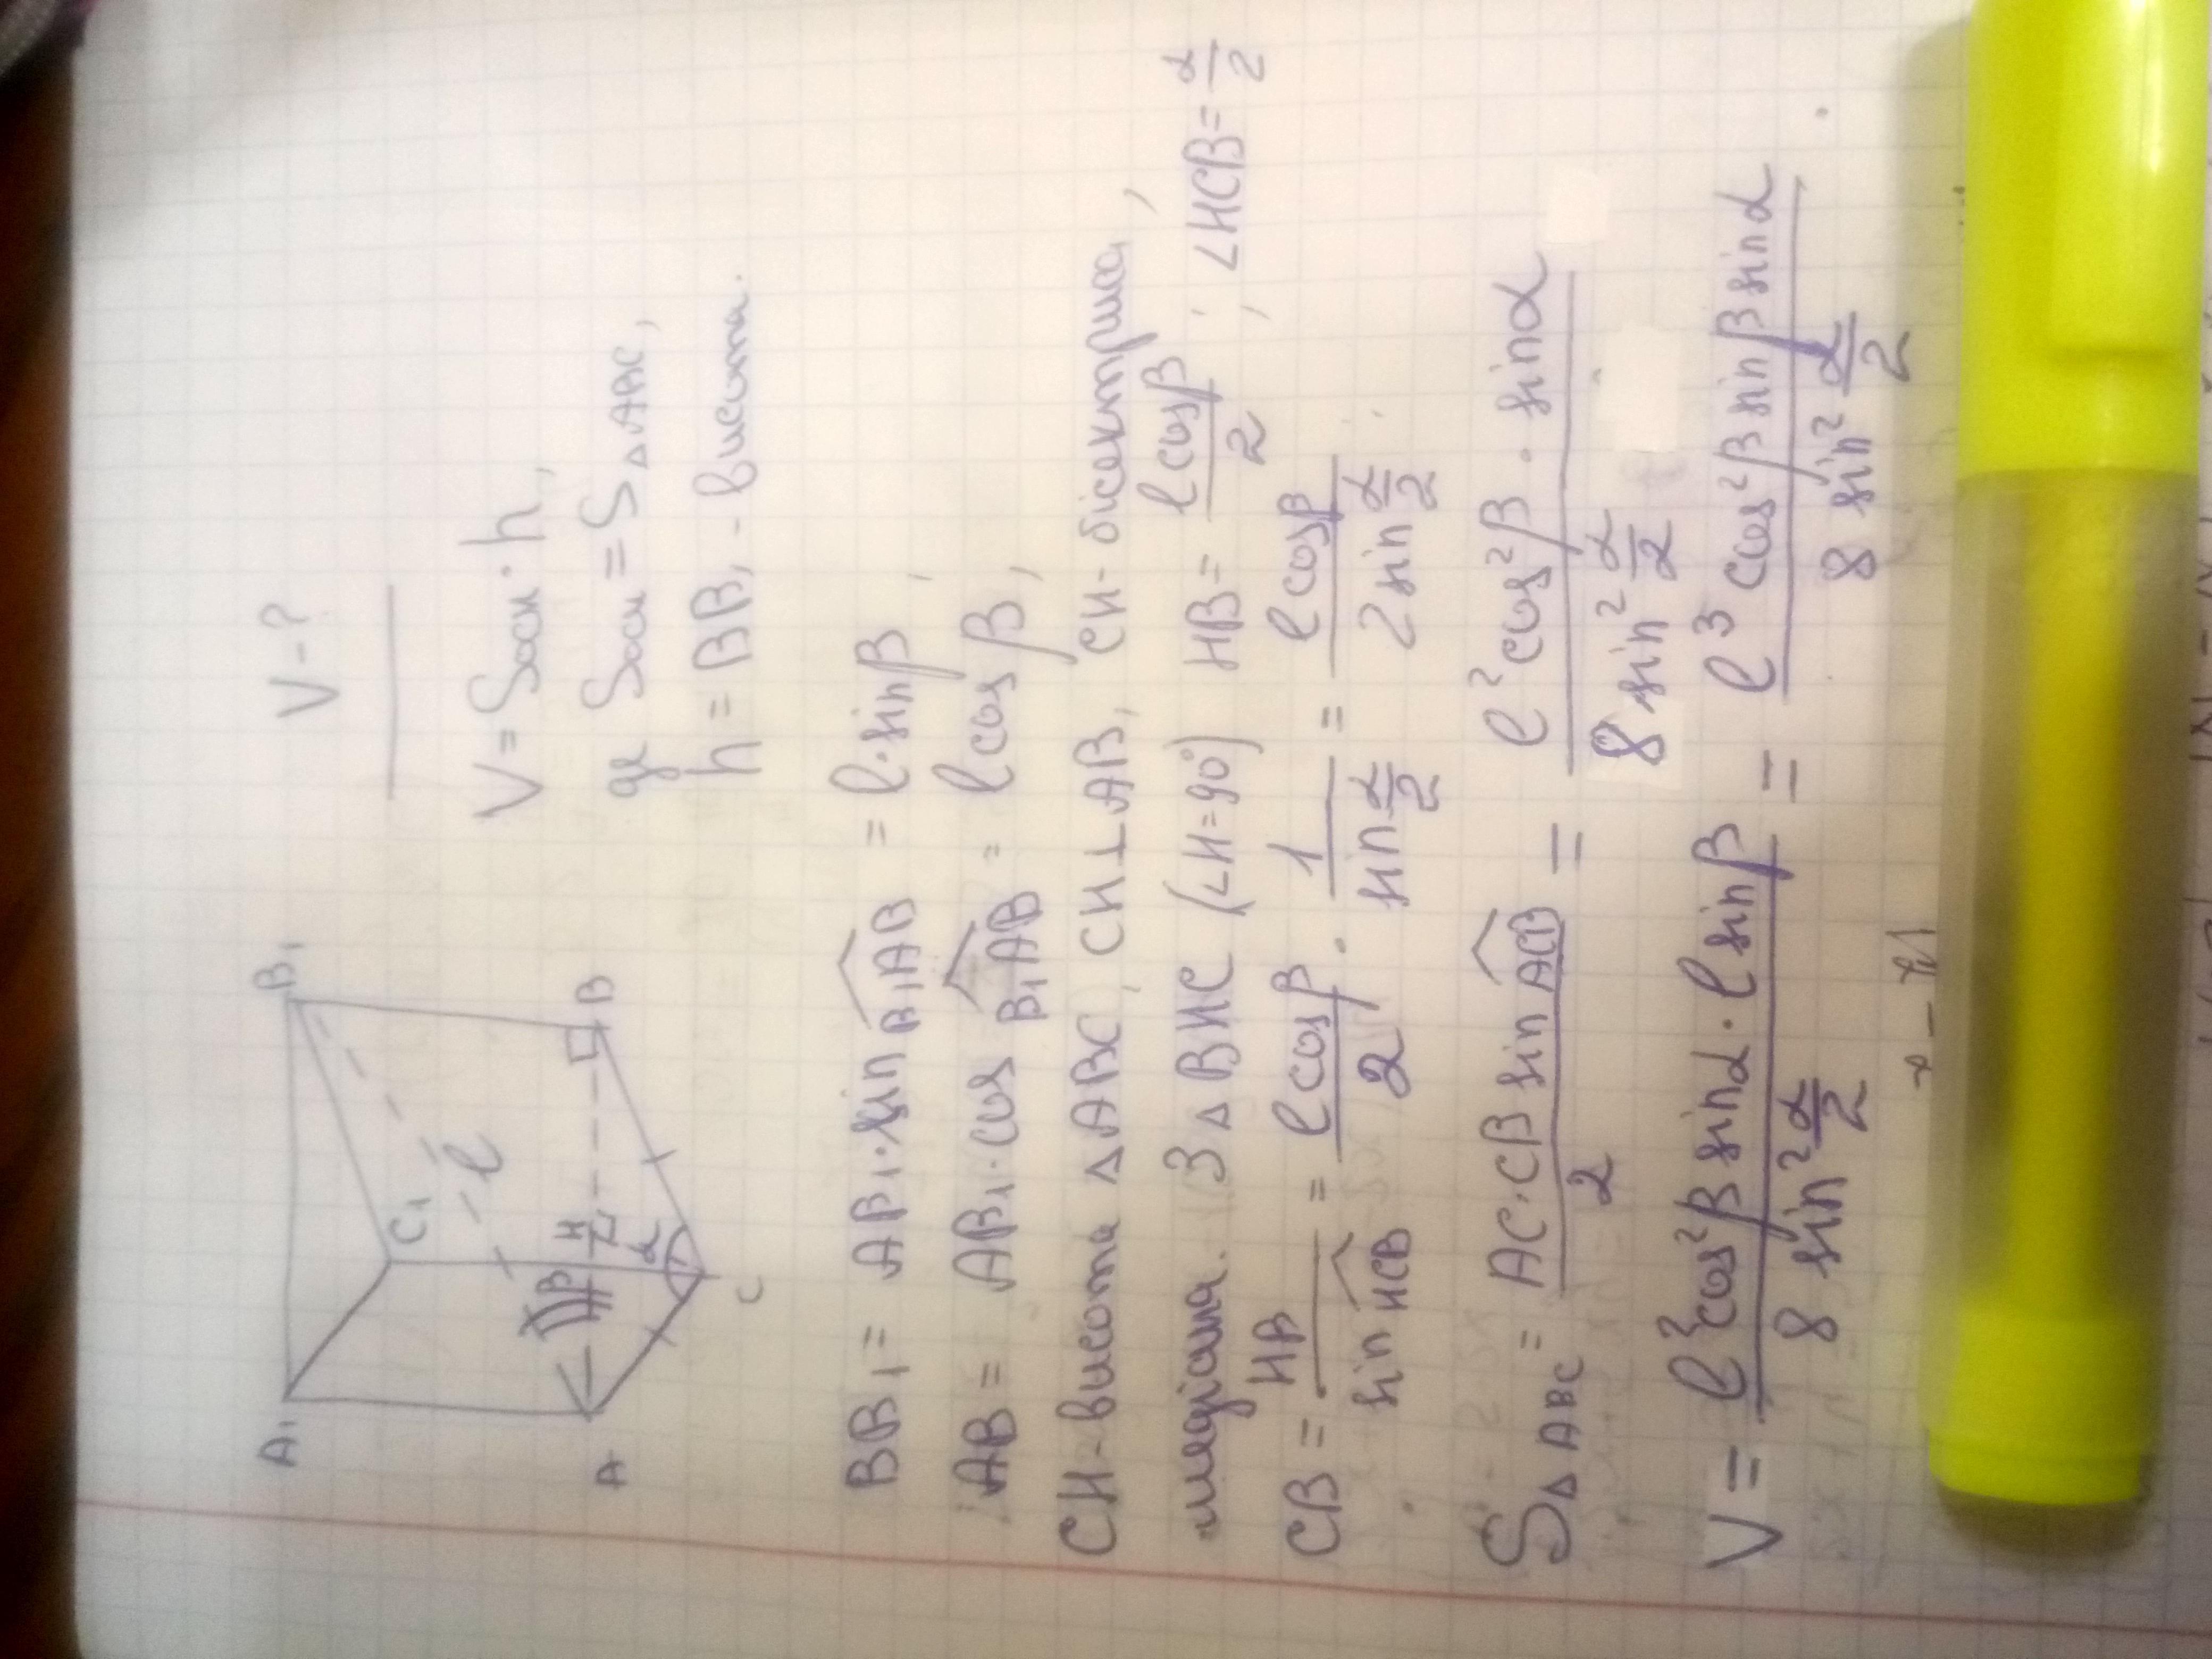 V - ?
A₁ B₁ C₁ l β H α A B C
V = Sосн · h,
де Sосн = S△ABC,
h = BB₁ - висота.
BB₁ = AB₁ · sin B₁AB = l · sin β,
AB = AB₁ · cos B₁AB = l cos β,
CH - висота △ABC, CH ⊥ AB, CH - бісектриса,
медіана. З △BHC (∠H = 90°) HB = l cos β / 2 ; ∠HCB = α/2
CB = HB / sin HCB = l cos β / 2 · 1 / sin α/2 = l cos β / 2 sin α/2
S△ABC = AC · CB sin ACB / 2 = l² cos² β · sin α / 8 sin² α/2
V = l² cos² β sin α · l sin β / 8 sin² α/2 = l³ cos² β sin β sin α / 8 sin² α/2